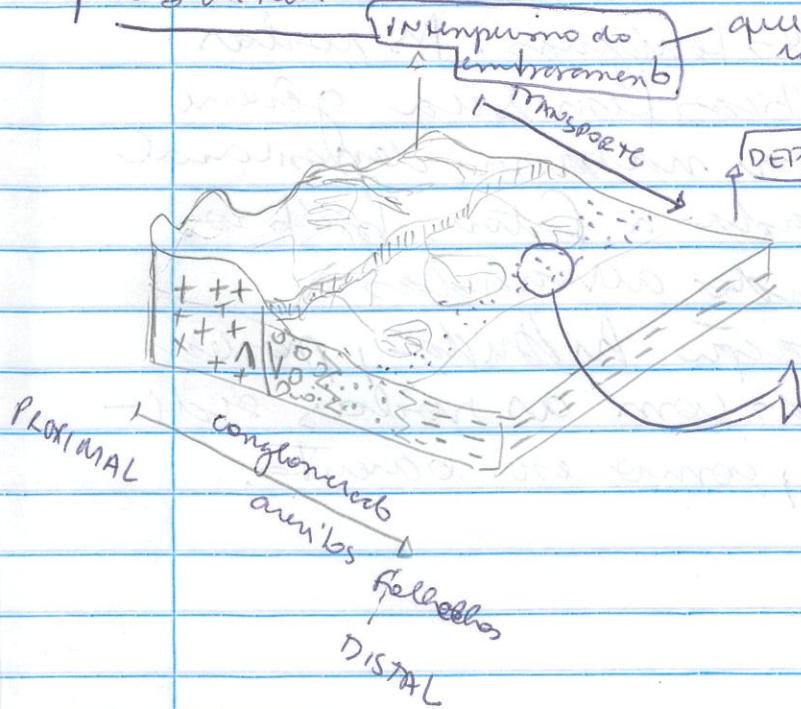 Intemperismo do — que
embasamento
TRANSPORTE
DEP
PROXIMAL
conglomerado
arenitos
Folhelhos
DISTAL